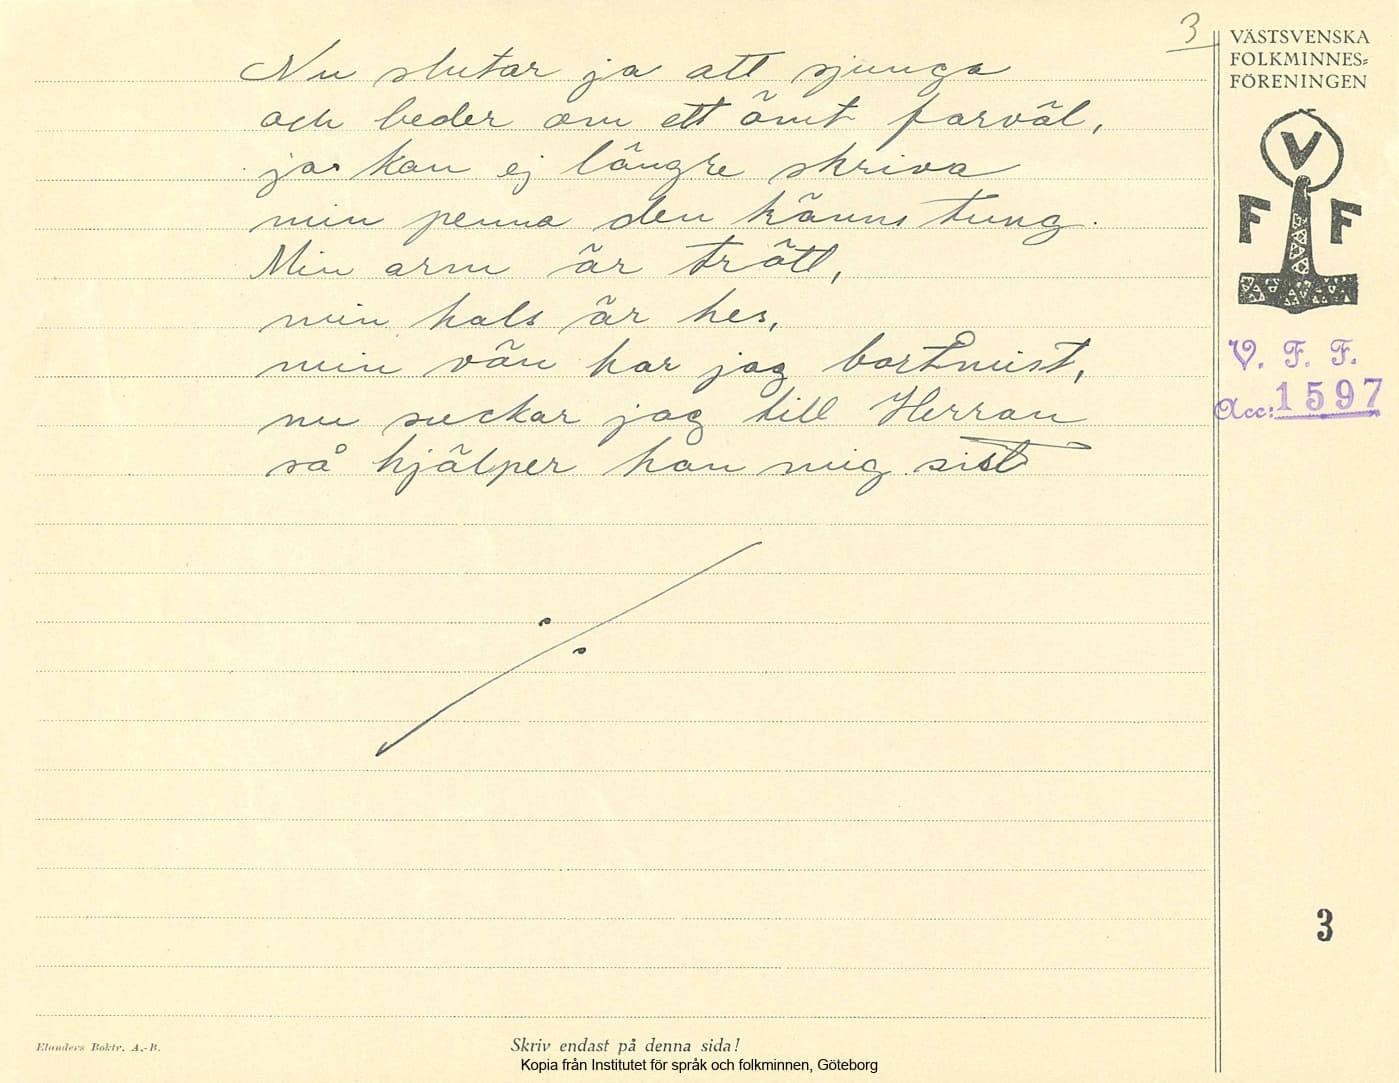 3
Nu slutar ja att sjunga
och beder om ett ömt farväl,
ja kan ej längre skriva
min penna den känns tung.
Min arm är trött,
min hals är hes,
min vän har jag bortmist,
nu suckar jag till Herran
så hjälper han mig sist
VÄSTSVENSKA
FOLKMINNES=
FÖRENINGEN
V
F F
V. F. F.
Acc: 1597
3
Elanders Boktr. A.-B.
Skriv endast på denna sida!
Kopia från Institutet för språk och folkminnen, Göteborg